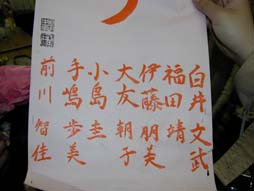 白井文武
福田靖
伊藤朋美
大友朝子
小島圭
手嶋歩美
前川智佳